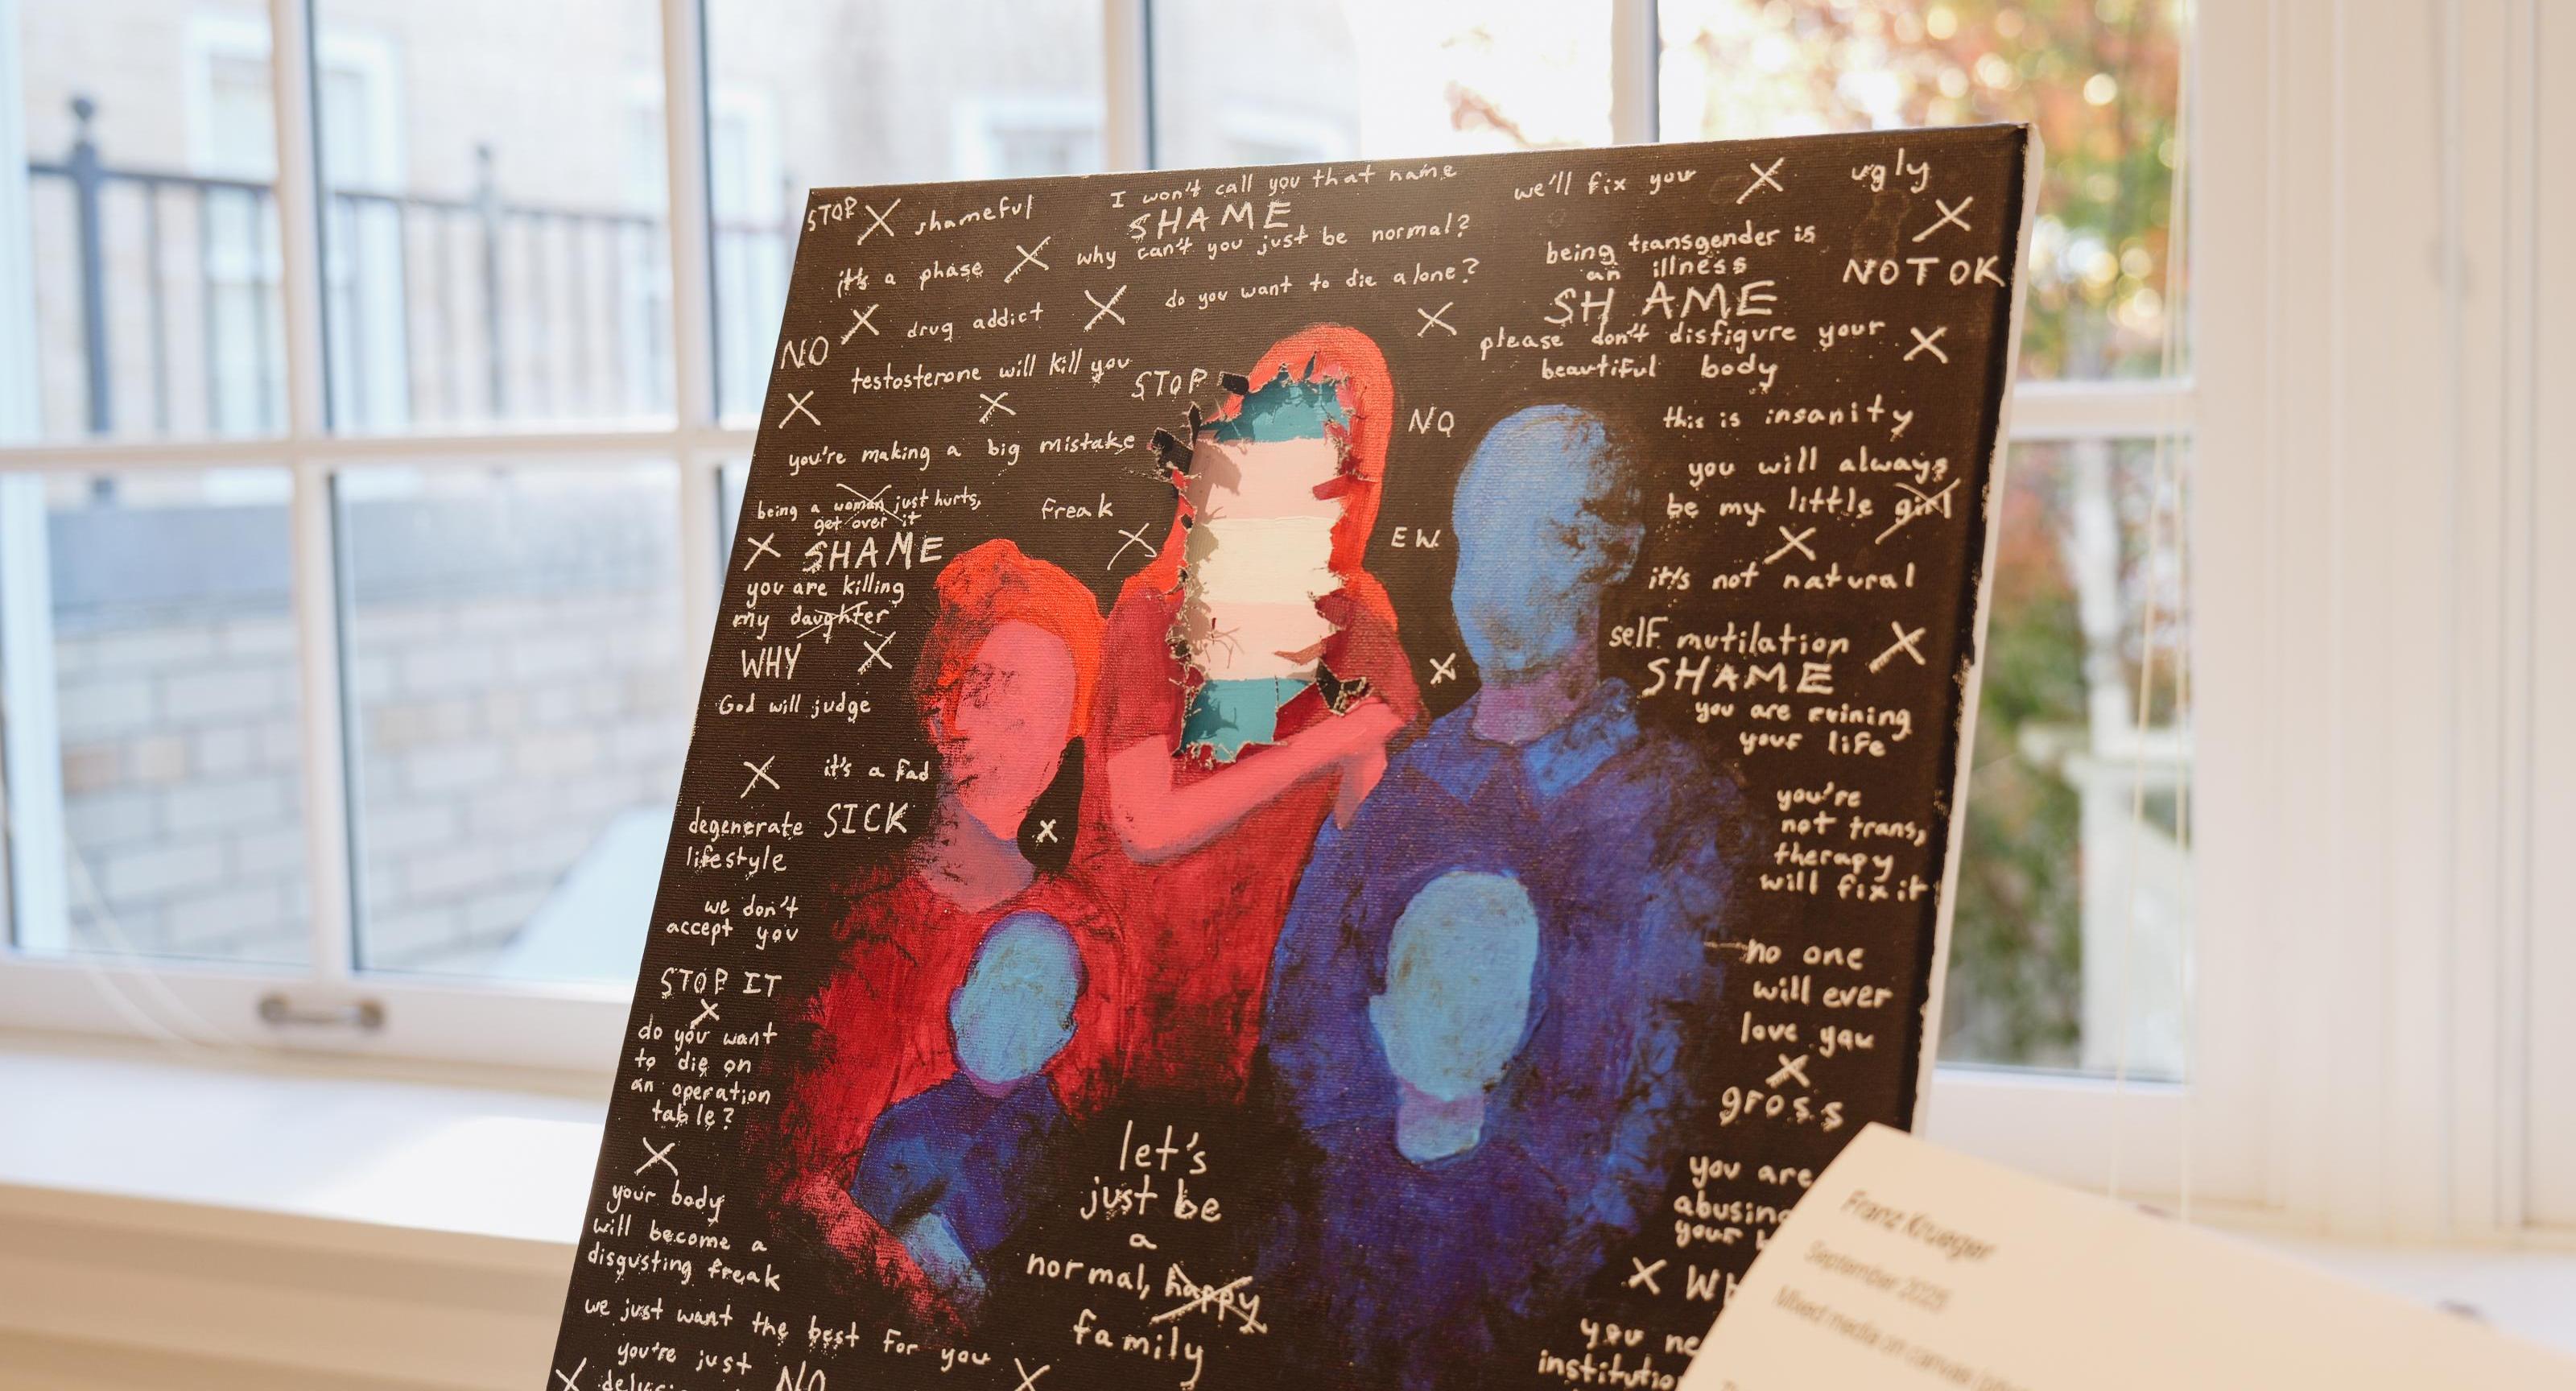 STOP
shameful
I won't call you that name
SHAME
why can't you just be normal?
we'll fix you
ugly
it's a phase
being transgender is
an illness
SHAME
NOT OK
NO
drug addict
do you want to die alone?
please don't disfigure your
beautiful body
testosterone will kill you
STOP
NO
this is insanity
you're making a big mistake
you will always
be my little girl
being a woman just hurts,
get over it
freak
EW
SHAME
it's not natural
you are killing
my daughter
WHY
self mutilation
SHAME
God will judge
you are ruining
your life
it's a fad
SICK
degenerate
lifestyle
you're
not trans,
therapy
will fix it
we don't
accept you
no one
will ever
love you
STOP IT
do you want
to die on
an operation
table?
gross
let's
just be
a
normal, happy
family
you are
abusing
your
your body
will become a
disgusting freak
we just want the best for you
you're just
NO
you
Franz Krueger
September 2025
Mixed media on canvas